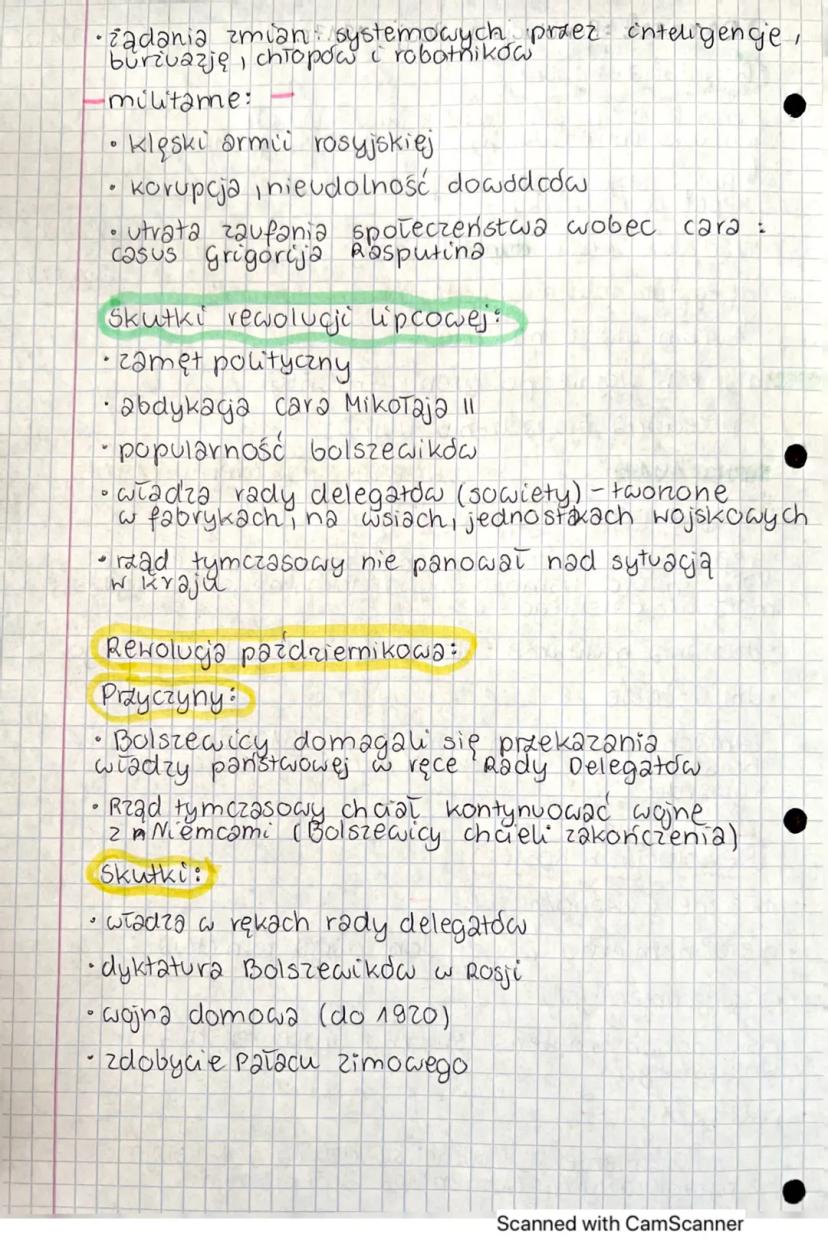 • żądania zmian systemowych przez inteligencję,
burżuazję, chłopów i robotników
– militarne: –
• klęski armii rosyjskiej
• korupcja, nieudolność dowódców
• utrata zaufania społeczeństwa wobec cara :
casus Grigorija Rasputina
Skutki rewolucji lipcowej:
• zamęt polityczny
• abdykacja cara Mikołaja II
• popularność bolszewików
• władza rady delegatów (sowiety) – tworzone
w fabrykach, na wsiach, jednostkach wojskowych
• rząd tymczasowy nie panował nad sytuacją
w kraju
Rewolucja październikowa:
Przyczyny:
• Bolszewicy domagali się przekazania
władzy państwowej w ręce Rady Delegatów
• Rząd tymczasowy chciał kontynuować wojnę
z Niemcami (Bolszewicy chcieli zakończenia)
Skutki:
• władza w rękach rady delegatów
• dyktatura Bolszewików w Rosji
• wojna domowa (do 1920)
• zdobycie Pałacu Zimowego
Scanned with CamScanner